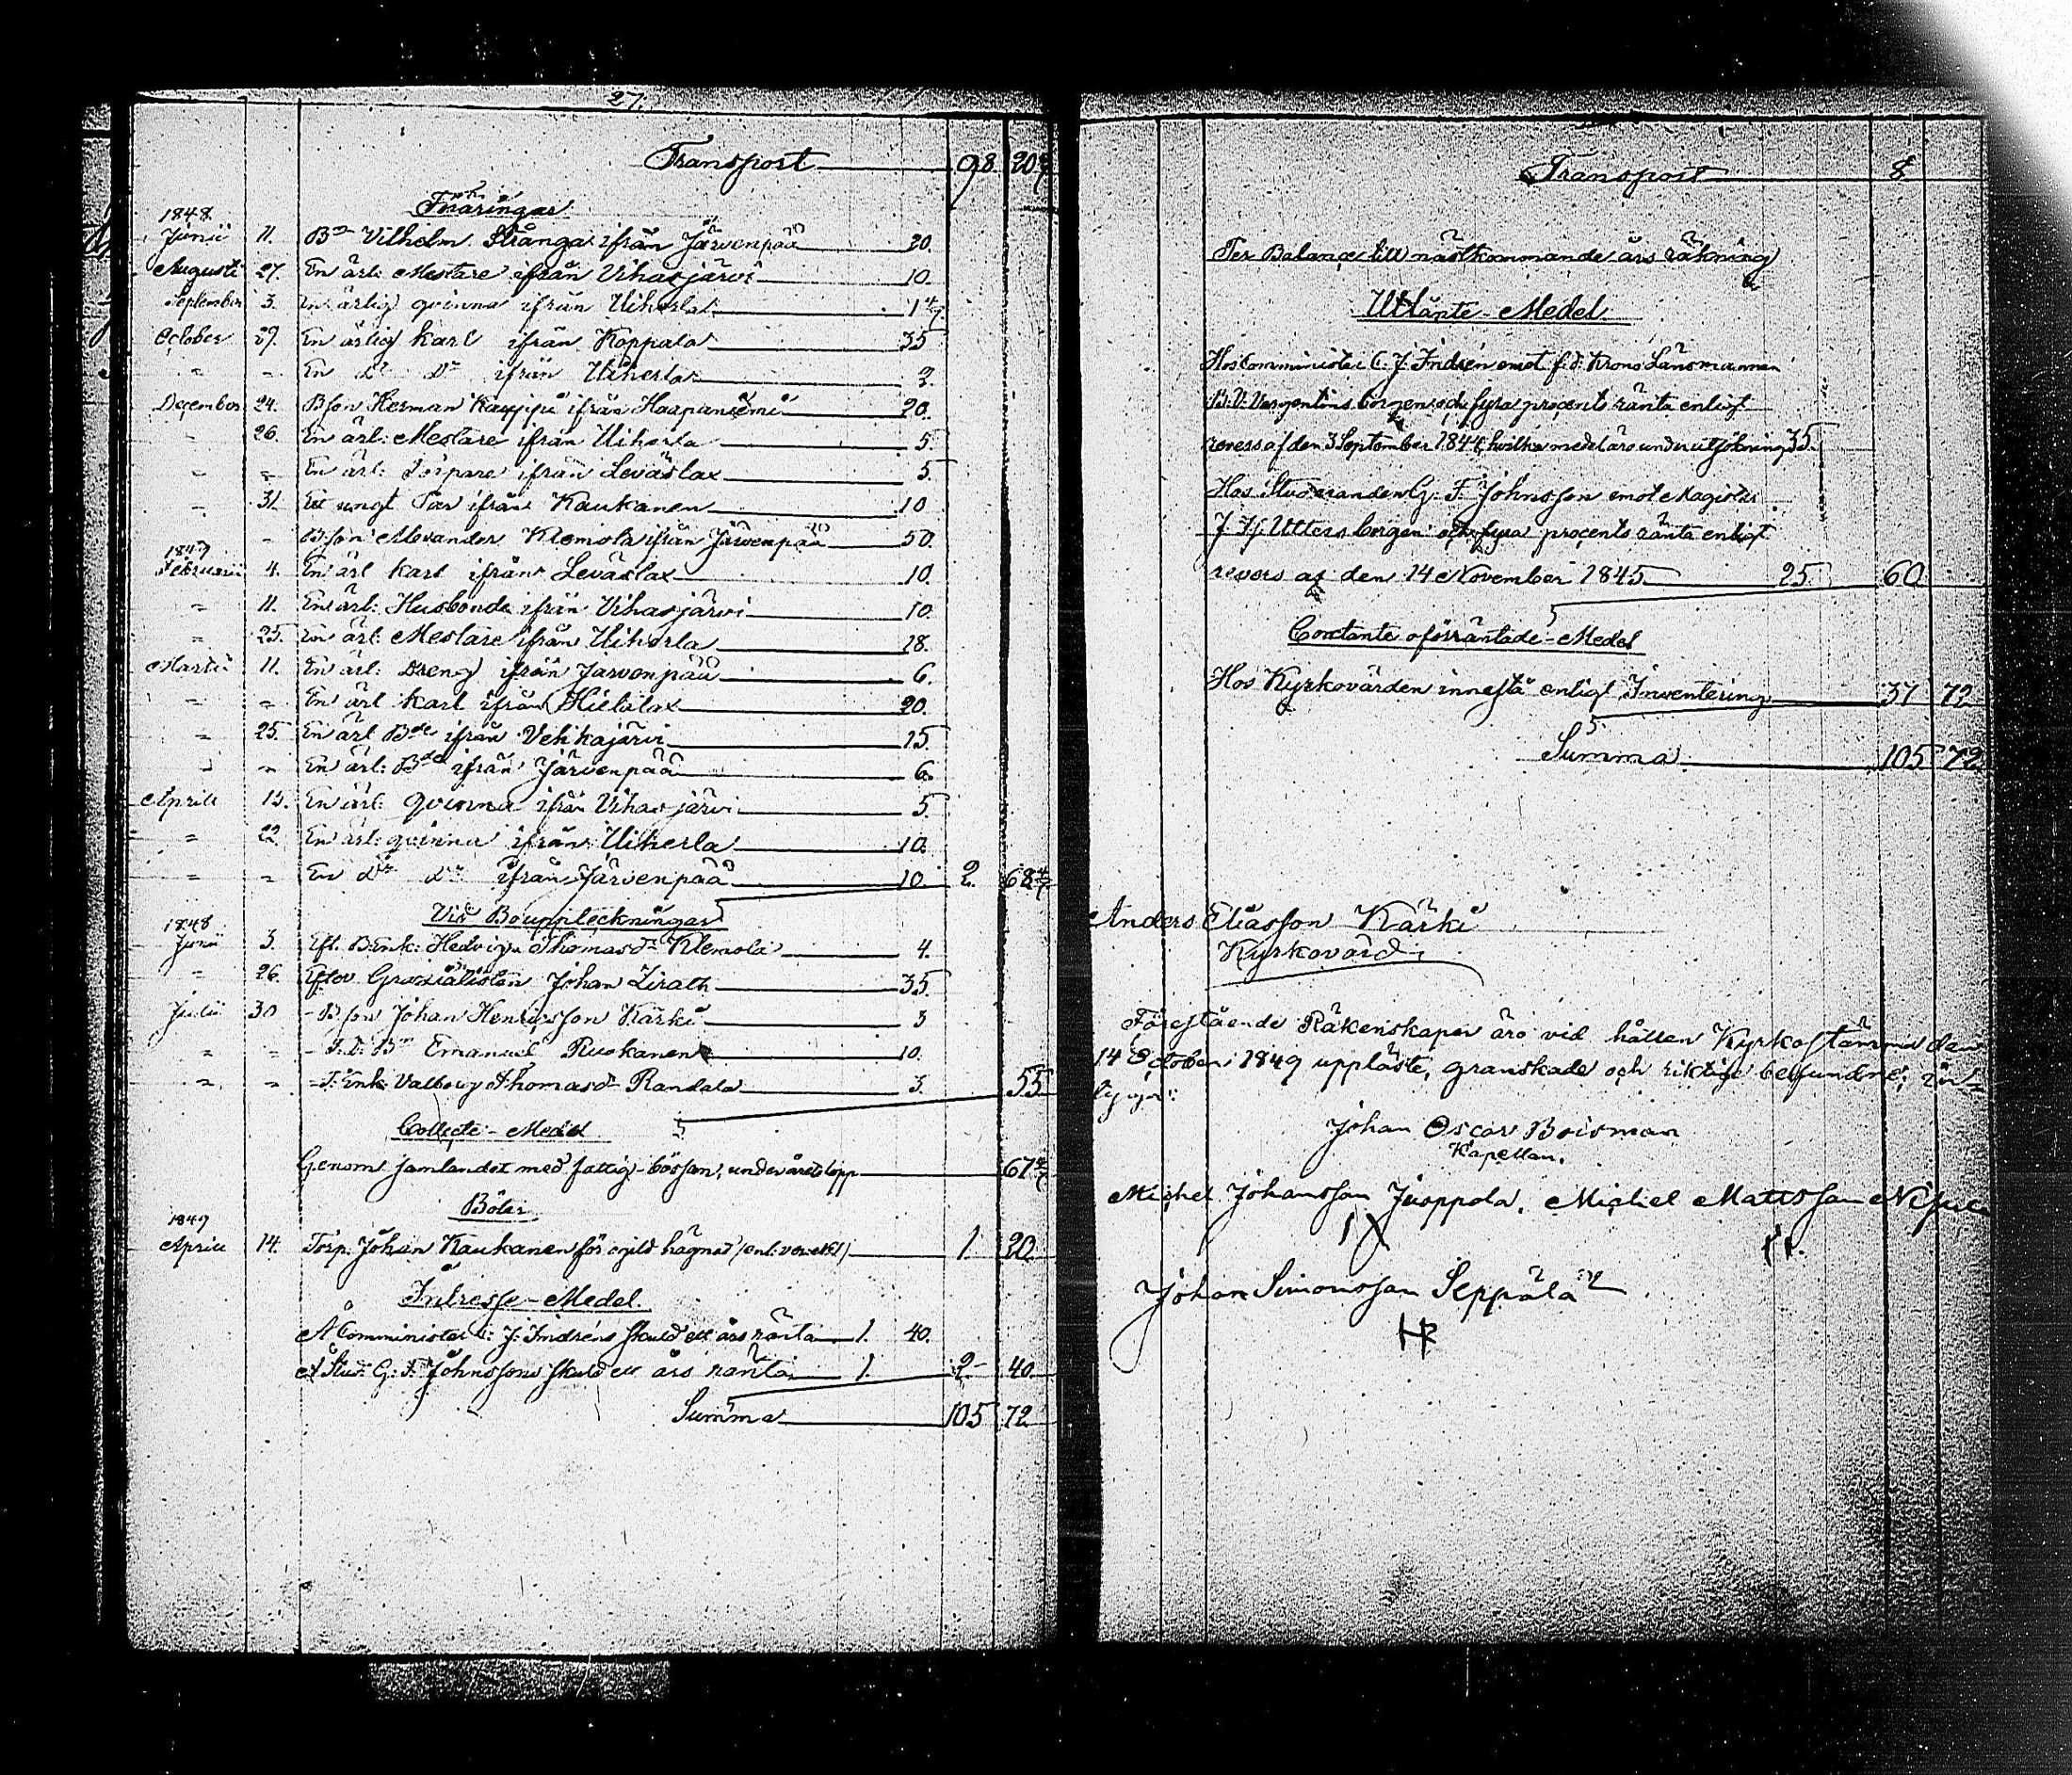 27.
Transport 98. 20 4/7
Förähringar
1848.
Junii 11. Bn Vilhelm Strånga ifrån Järvenpää 20.
Augusti 27. En ärl: Mestare ifrån Vihasjärvi 10.
September 3. En ärlig qvinna ifrån Uiherla 1 4/7
October 29. En ärlig karl ifrån Koppala 35
" " En do do ifrån Uiherla 2.
December 24. Bson Herman Kauppi ifrån Haapaniemi 20.
" 26. En ärl: Mestare ifrån Uiherla 5.
" " En ärl: Torpare ifrån Leväslax 5.
" 31. Ett ungt Par ifrån Kaukanen 10
" Bson Alexander Klemola ifrån Järvenpää 50.
1849
Februarii 4. En ärl karl ifrån Leväslax 10.
" 11. En ärl: Husbonde ifrån Vihasjärvi 10.
" 25. En ärl: Mestare ifrån Uiherla 18.
Martii 11. En ärl: Dreng ifrån Jarvenpää 6.
" " En ärl karl ifrån Hietalax 20.
" 25. En ärl Bde ifrån Vehkajärvi 15
" " En ärl: Bde ifrån Järvenpää 6.
Aprill 15. En ärl: qvinna ifrån Vihasjärvi 5
" 22. En ärl: qvinna ifrån Uiherla 10.
" " En do do ifrån Järvenpää 10. 2. 68 4/7
Vid Bouppteckningar
1848
Junii 3. Eft. B:Enk: Hedvig Thomasdr Klemola 4.
" 26. Efter Gratialisten Johan Lirath 35.
Julii 30 - B.son Johan Henricsson Kärki 3
" " - F.d: Bn Emanuel Ruokanen 10.
" " - T:Enk: Valborg Thomasdr Randala 3. 55
Collecte-Medel
Genom samlandet med fattig-bössan, under årets lopp 67 4/7
Böter
1849
Aprill 14. Torp. Johan Kaukanen för ogild hägnad (enl: ver: N:1) 1. 20
Intresse-Medel.
Å Comminister C: J: Indréns skuld ett års ränta 1. 40.
Å Stud: G: F: Johnssons skuld ett års ränta 1. 2 - 40.
Summa 105 72
Transport 8.
Per Balance till nästkommande års räkning
Utlånte-Medel
Hos Comminister C. J. Indrén emot f.d: Krono Länsmannen
B: V: Vargentins borgen och fyra procents ränta enligt
revers af den 3 September 1844, hvilka medel äro under utsökning 35.
Hos Studeranden G: F: Johnsson emot Magister
J. H. Utters borgen och fyra procents ränta enligt
revers af den 14 November 1845 25. 60
Contante oförräntade-Medel
Hos Kyrkovärden innestå enligt Inventering 37 72
Summa 105 72
Anders Eliasson Kärki
Kyrkovärd
Förestående Räkenskaper äro vid hållen Kyrkostämma den
14 October 1849 uppläste, granskade och riktige befundne;
Johan Oscar Boisman
Kapellan.
Michel Johansson Juoppola. Michel Mattsson
Johan Simonsson Seppälä